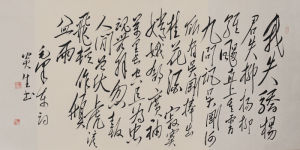 我失驕楊
君失柳楊柳
輕颺直上重霄
九問訊吳剛何
所有吳剛捧出
桂花酒寂寞
嫦娥舒廣袖
萬里長空且為忠
魂舞忽報
人間曾伏虎淚
飛頓作傾
盆雨
毛澤東詞
生書